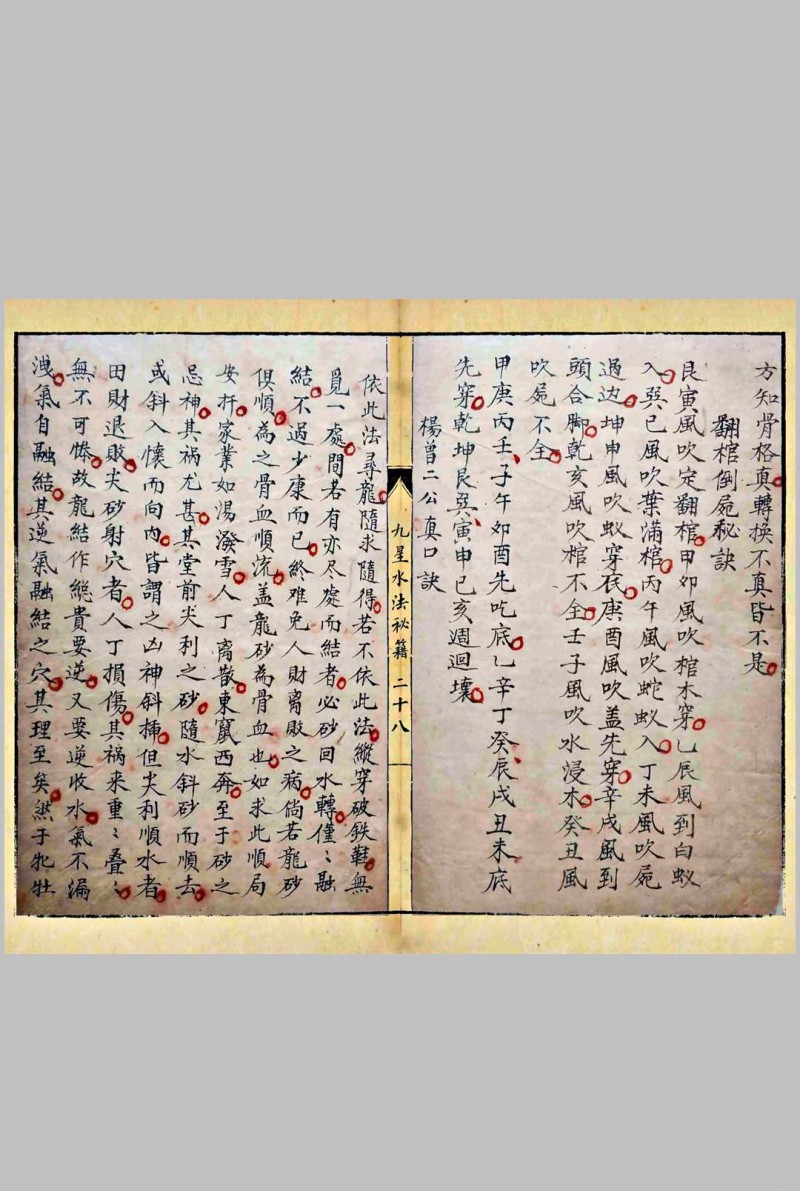 方知骨格真轉換不真皆不是
翻棺倒屍秘訣
艮寅風吹定翻棺甲卯風吹棺木穿乙辰風到白蚁
入巽巳風吹葉滿棺丙午風吹蛇蚁入丁未風吹屍
過边坤申風吹蚁穿衣庚酉風吹盖先穿辛戌風到
頭合脚乾亥風吹棺不全壬子風吹水浸木癸丑風
吹屍不全
甲庚丙壬子午卯酉先吃底乙辛丁癸辰戌丑未底
先穿乾坤艮巽寅申巳亥週迴壤
楊曾二公真口訣
九星水法祕籍 二十八
依此法尋龍隨求隨得若不依此法縱穿破鉄鞋無
覓一處間若有亦尽處而結者必砂回水轉僅〻融
結不過少康而已終难免人財离敗之病倘若龍砂
俱順為之骨血順流盖龍砂為骨血也如求此順局
安扦家業如湯潑雪人丁离散東竄西奔至于砂之
忌神其祸尤甚其堂前尖利之砂隨水斜砂而順去
或斜入懷而向内皆謂之凶神斜揷但尖利順水者
田財退敗尖砂射穴者人丁損傷其祸来重〻叠〻
無不可慘故龍結作緃貴要逆又要逆收水氣不漏
洩氣自融結其逆氣融結之穴其理至矣然于牝牡